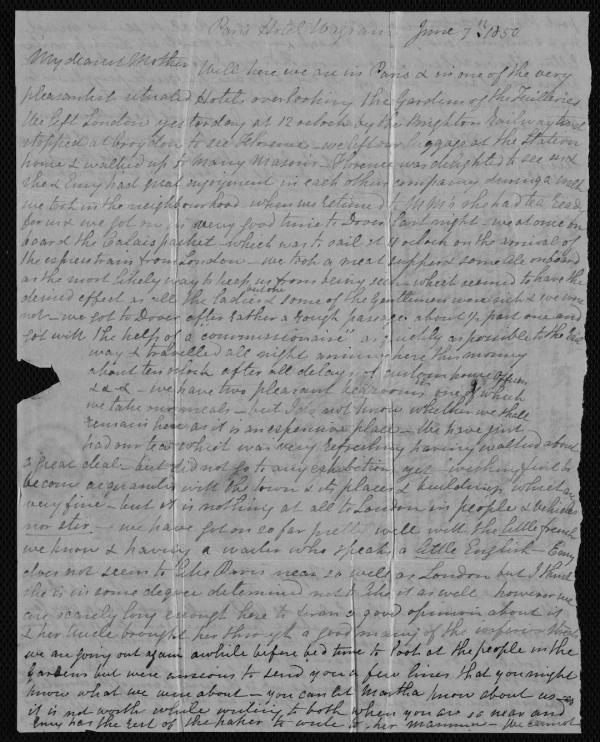 Paris Hotel Wagram June 7th 1850
My dearest Mother
Well here we are in Paris & in one of the very
pleasantest situated Hotels overlooking the Gardens of the Tuilleries
We left London yesterday at 12 oclock by the Brighton Railway &
stopped at Croydon to see Florence - we left our luggage at the Station
house & walked up to Mary Masons - Florence was delighted to see us &
she & Emy had great enjoyment in each others company during a walk
we took in the neighbourhood when we returned to MM's she had tea ready
for us & we got on in very good time to Dover last night - we at once on
board the Calais packet - which was to sail at 11 oclock on the arrival of
the express train from London - we took a meat supper & some ale on board
as the most likely way to keep us from being sick which seemed to have the
desired effect as all the ladies but one & some of the Gentlemen were sick & we were
not - we got to Dover after rather a rough passage about ½ past one and
got with the help of a "commissionaire" as quickly as possible to the Rail
way & travelled all night arriving here this morning
about ten oclock after all delays of custom house officers
&&& - we have two pleasant bedrooms in one of which
we take our meals - but I do not know whether we shall
remain here as it is an expensive place - We have just
had our tea which was very refreshing having walked about
a great deal - but did not go to any exhibition yet - wishing first to
become acquainted with the town & its places & buildings which are
very fine - but it is nothing at all to London in people & vehicles
nor stir - we have got on so far pretty well with the little french
we know & having a waiter who speaks a little English - Emy
does not seem to like Paris near so well as London but I think
she is in some degree determined not to like it as well however we
are scarcely long enough here to form a good opinion about it
& her Uncle brought her through a good many of the inferior streets
we are going out again awhile before bed time to look at the people in the
Gardens but were anxious to send you a few lines that you might
know what we were about - you can let Martha know about us - as
it is not worth while writing to both when you are so near and
Emy has the rest of the paper to write to her mamma - We cannot